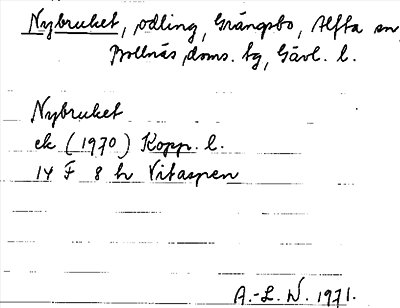 Nybruket, odling, Grängsbo, Alfta sn,
Bollnäs doms. tg, Gävl. l.
Nybruket
ek (1970) Kopp. l.
14 F 8 h Vitaspen
A.-L. W. 1971.